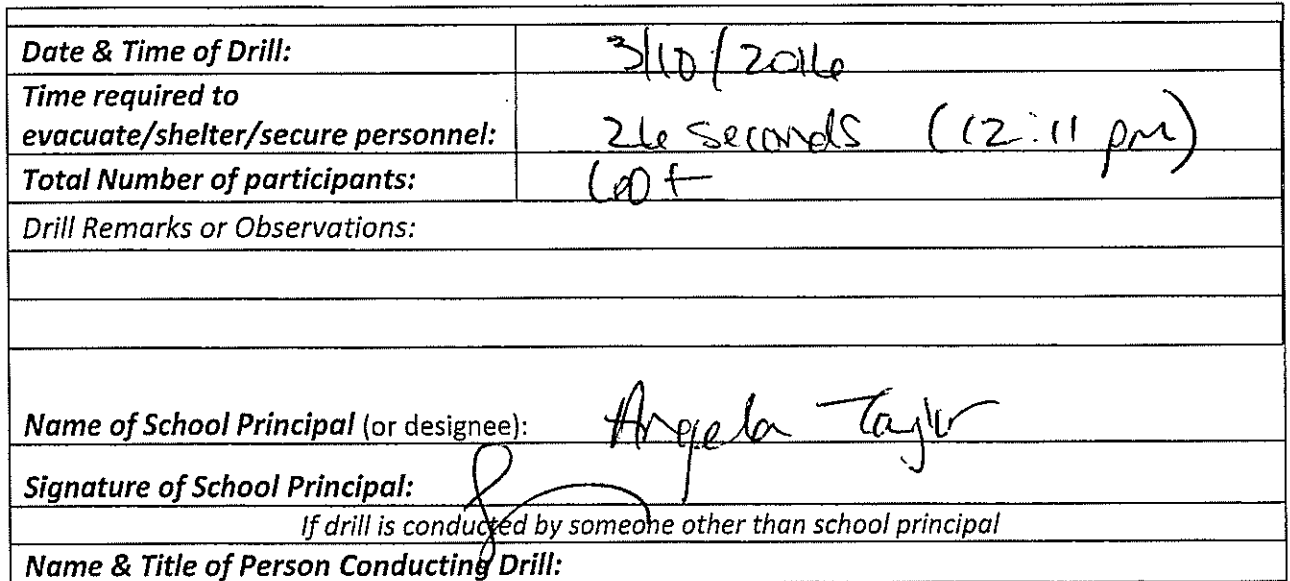 Date & Time of Drill: 3/10/2016
Time required to
evacuate/shelter/secure personnel: 26 seconds (12:11 pm)
Total Number of participants: 60+
Drill Remarks or Observations:
Name of School Principal (or designee): Angela Taylor
Signature of School Principal:
If drill is conducted by someone other than school principal
Name & Title of Person Conducting Drill: